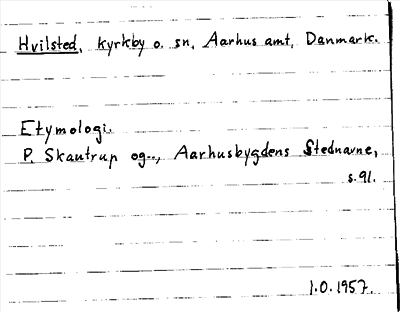 Hvilsted, kyrkby o. sn, Aarhus amt, Danmark.
Etymologi.
P. Skautrup og.., Aarhusbygdens Stednavne,
s.91.
J.O. 1957.